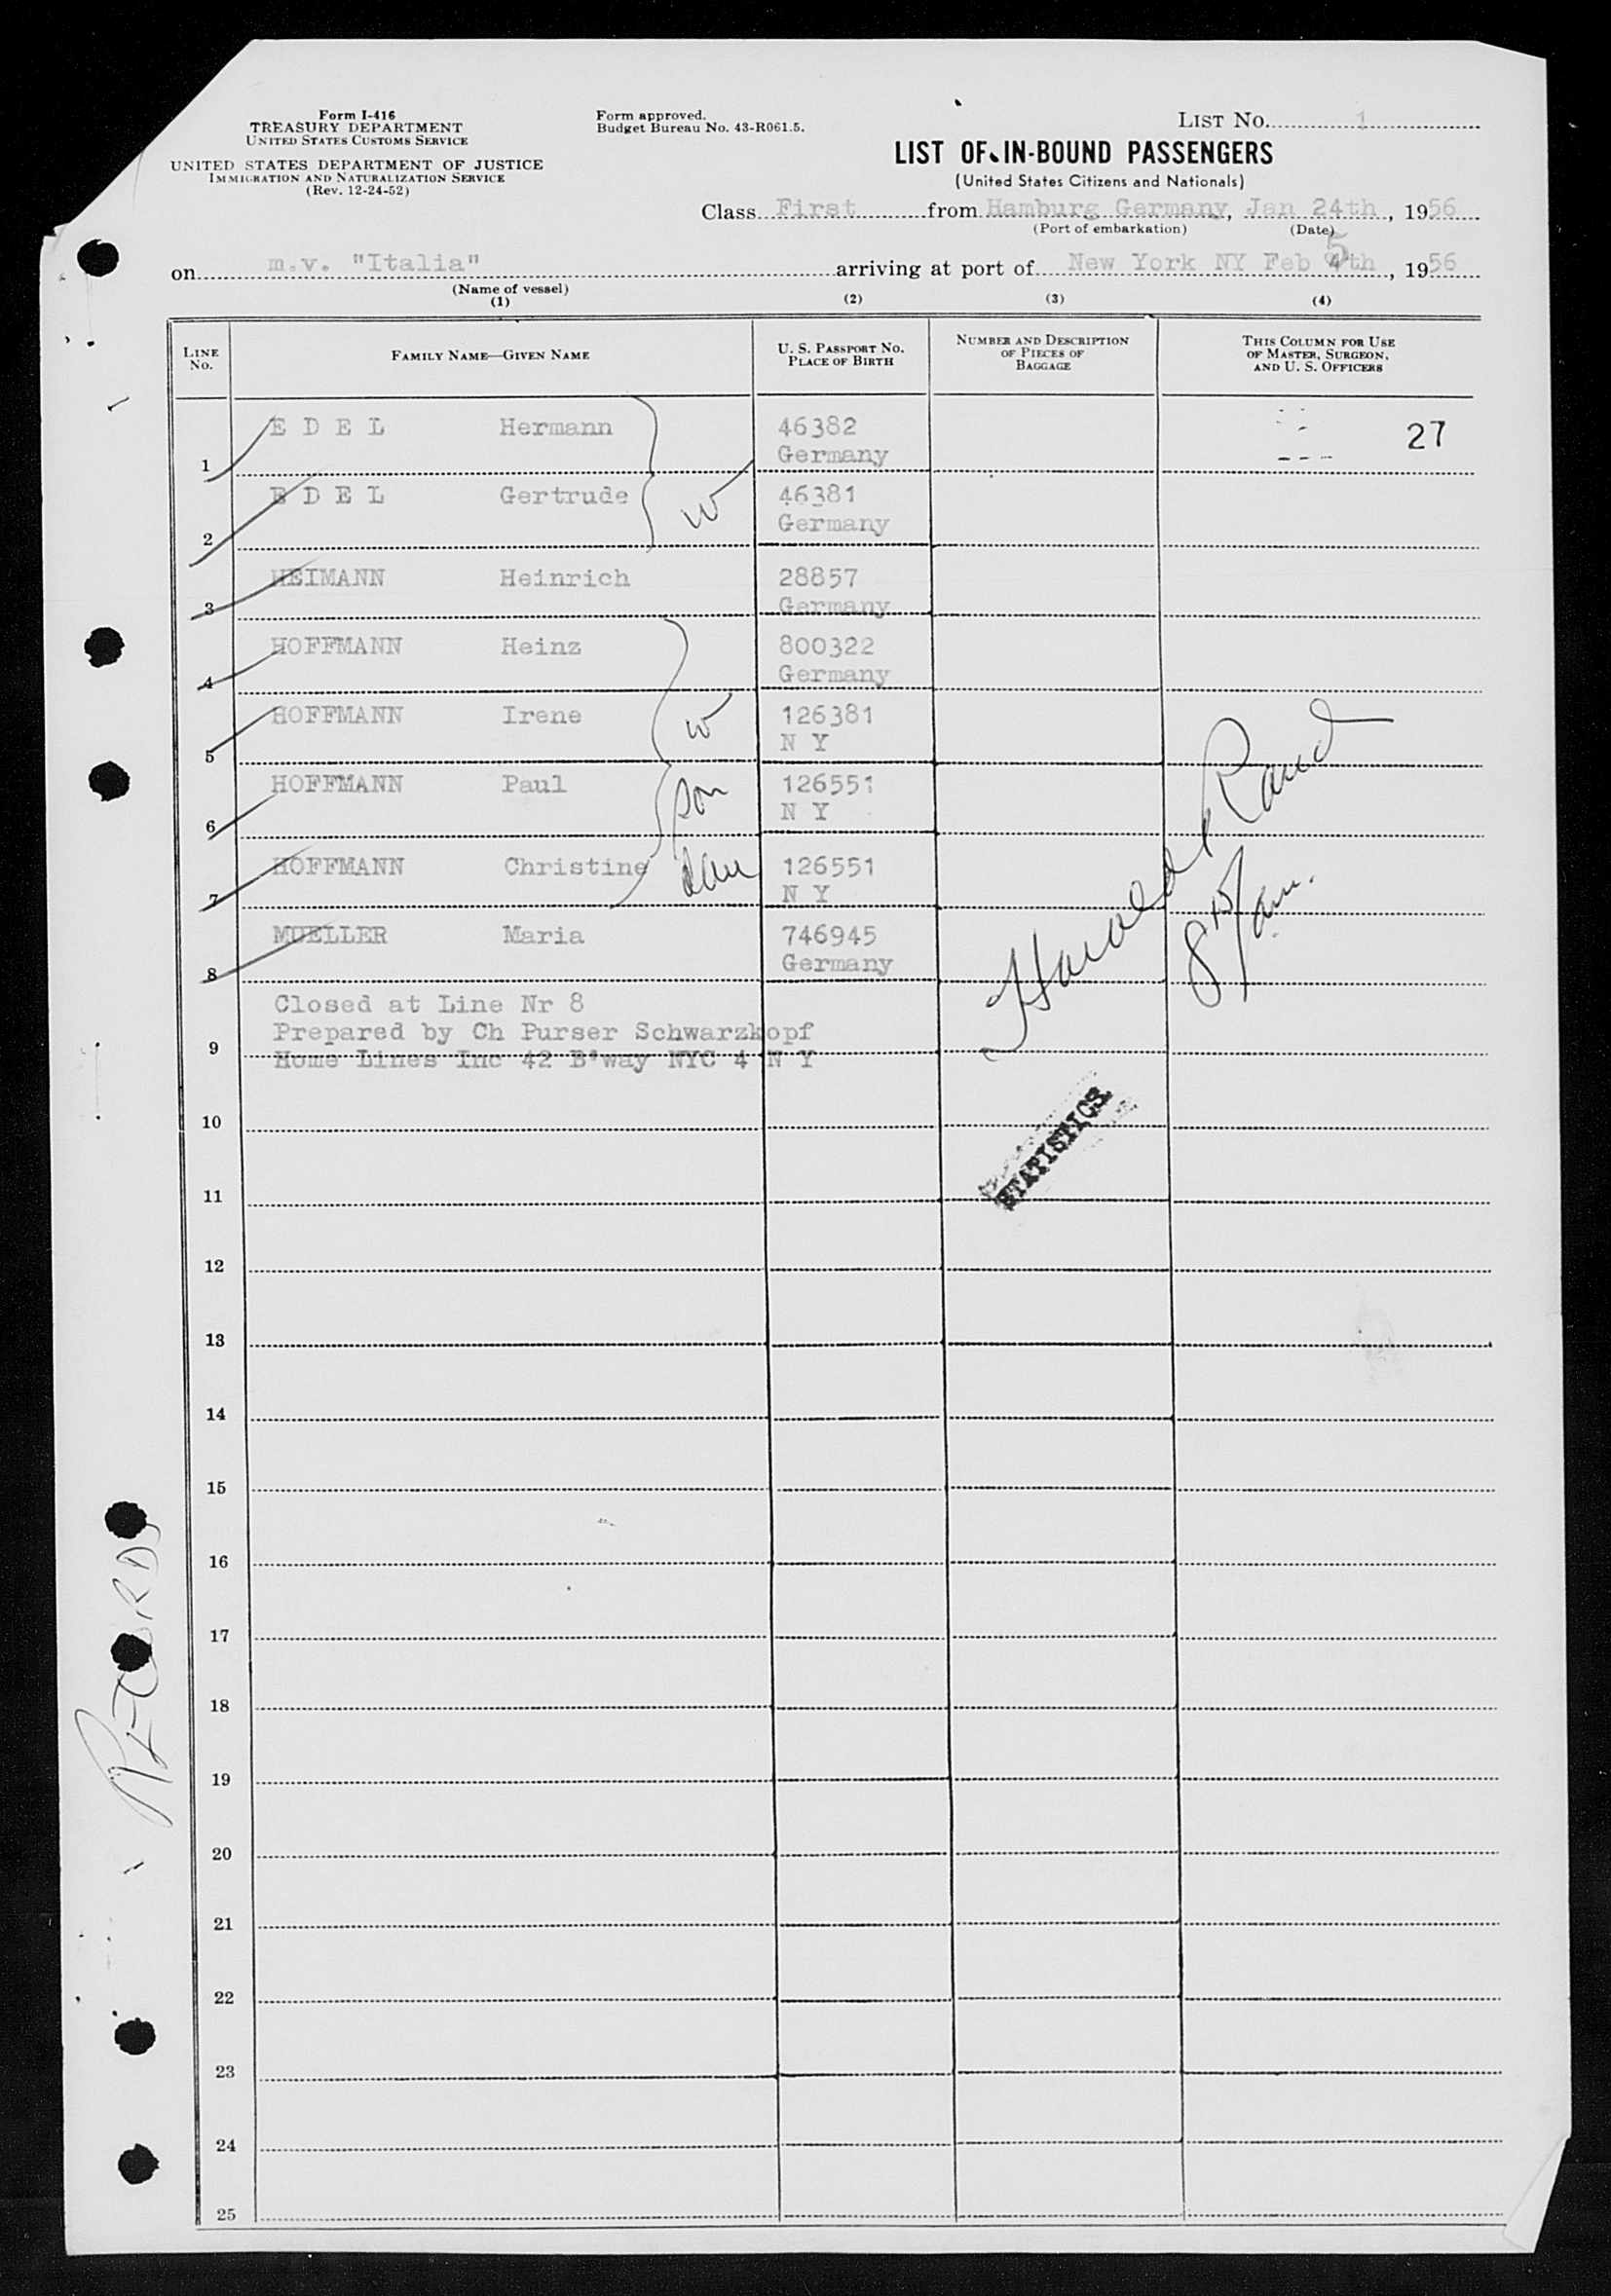 Form I-416
TREASURY DEPARTMENT
UNITED STATES CUSTOMS SERVICE
UNITED STATES DEPARTMENT OF JUSTICE
IMMIGRATION AND NATURALIZATION SERVICE
(Rev. 12-24-52)
Form approved.
Budget Bureau No. 43-R061.5.
LIST NO. 1
LIST OF IN-BOUND PASSENGERS
(United States Citizens and Nationals)
Class First from Hamburg Germany, Jan 24th, 1956
(Port of embarkation) (Date)
on m.v. "Italia" arriving at port of New York NY Feb 4th, 1956
5
(Name of vessel)
(1) (2) (3) (4)
LINE NO. FAMILY NAME—GIVEN NAME U. S. PASSPORT NO. PLACE OF BIRTH NUMBER AND DESCRIPTION OF PIECES OF BAGGAGE THIS COLUMN FOR USE OF MASTER, SURGEON, AND U. S. OFFICERS
1 E D E L Hermann 46382 27
Germany
2 E D E L Gertrude W 46381
Germany
3 HEIMANN Heinrich 28857
Germany
4 HOFFMANN Heinz 800322
Germany
5 HOFFMANN Irene W 126381
N Y
6 HOFFMANN Paul son 126551
N Y
7 HOFFMANN Christine dau 126551
N Y
8 MUELLER Maria 746945
Germany
Harold Rand
8 15/am.
Closed at Line Nr 8
Prepared by Ch Purser Schwarzkopf
9 Home Lines Inc 42 B'way NYC 4 N Y
STATISTICS
10
11
12
13
14
15
16
17
18
19
20
21
22
23
24
25
RECORDS